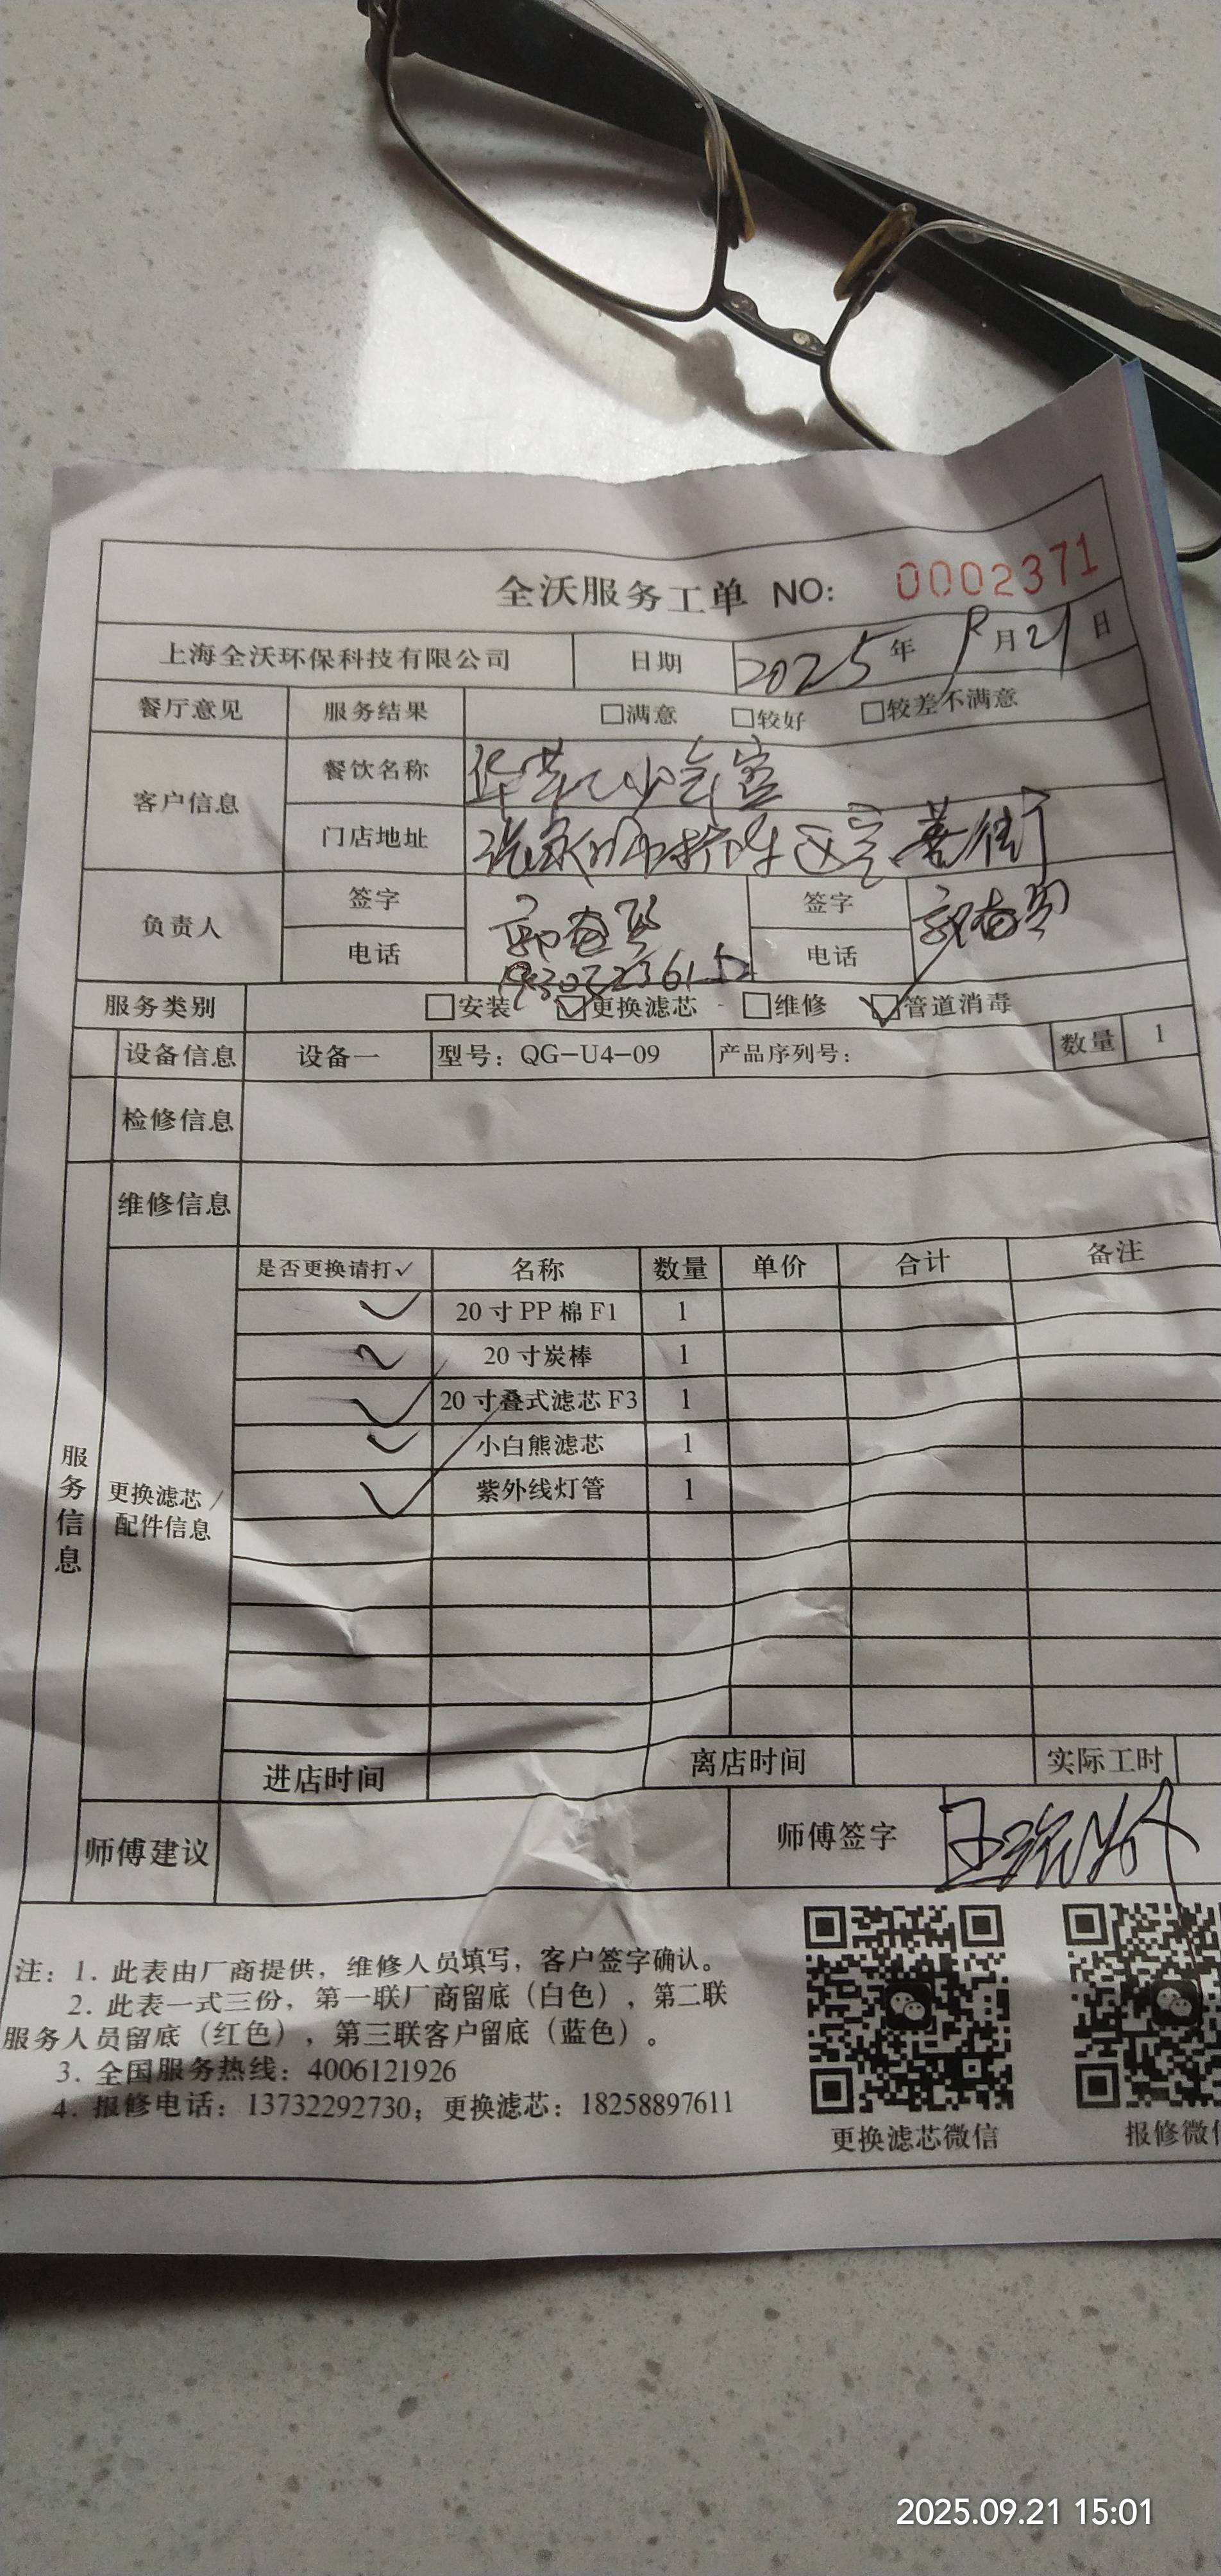 全沃服务工单 NO: 0002371
上海全沃环保科技有限公司 日期 2025年9月21日
餐厅意见 服务结果 □满意 □较好 □较差不满意
客户信息 餐饮名称
门店地址
负责人 签字 签字
电话 电话
服务类别 □安装 ☑更换滤芯 □维修 ☑管道消毒
设备信息 设备一 型号：QG-U4-09 产品序列号： 数量 1
检修信息
维修信息
服务信息
更换滤芯/配件信息
是否更换请打✓ 名称 数量 单价 合计 备注
✓ 20寸PP棉F1 1
✓ 20寸炭棒 1
✓ 20寸叠式滤芯F3 1
✓ 小白熊滤芯 1
✓ 紫外线灯管 1
进店时间 离店时间 实际工时
师傅建议 师傅签字
注：1. 此表由厂商提供，维修人员填写，客户签字确认。
2. 此表一式三份，第一联厂商留底（白色），第二联
服务人员留底（红色），第三联客户留底（蓝色）。
3. 全国服务热线：4006121926
4. 报修电话：13732292730；更换滤芯：18258897611
更换滤芯微信 报修微信
2025.09.21 15:01